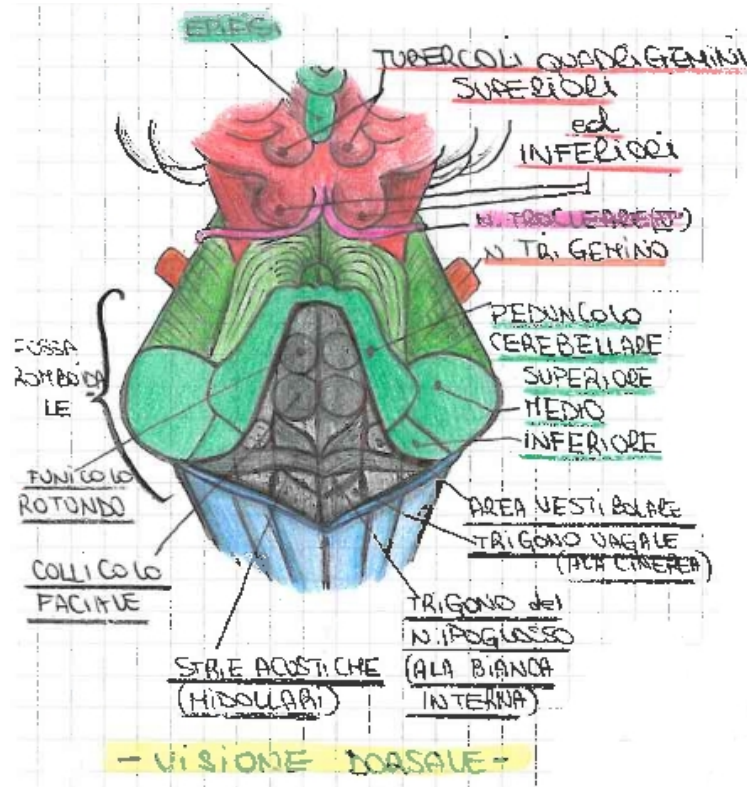 EPIFISI
TUBERCOLI QUADRIGEMINI
SUPERIORI
ed
INFERIORI
N. TROCLEARE (IV)
N TRIGEMINO
PEDUNCOLO
CEREBELLARE
SUPERIORE
MEDIO
INFERIORE
FOSSA
ROMBOIDA
LE
FUNICOLO
ROTONDO
COLLICOLO
FACIALE
AREA VESTIBOLARE
TRIGONO VAGALE
(ALA CINEREA)
TRIGONO del
N. IPOGLOSSO
(ALA BIANCA
INTERNA)
STRIE ACUSTICHE
(MIDOLLARI)
- VISIONE DORSALE -